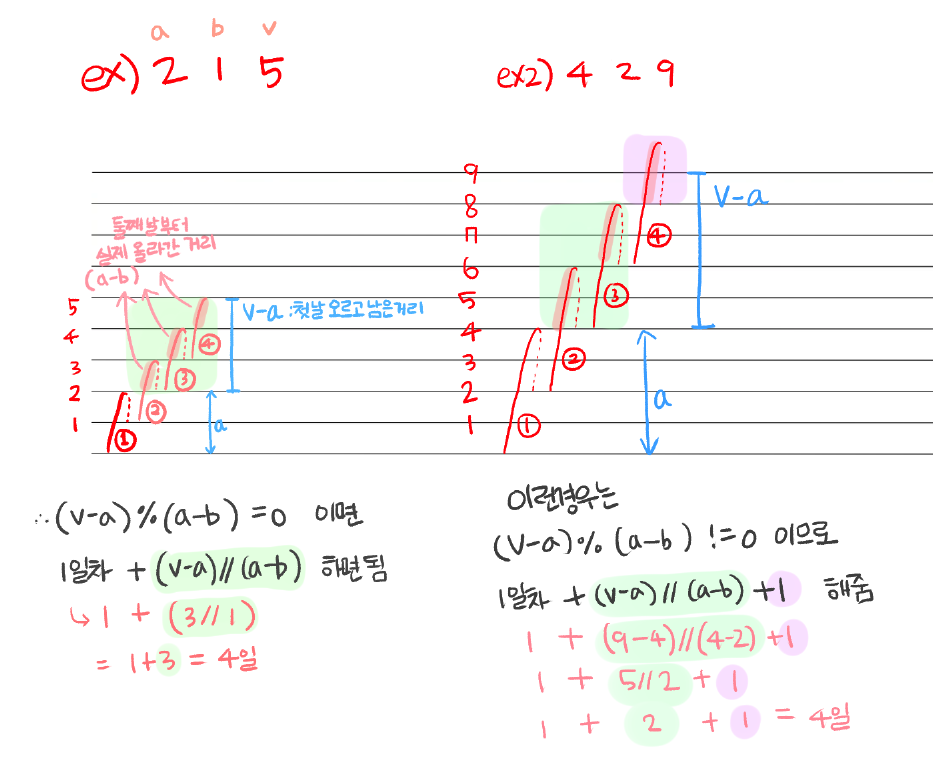 a b v
ex) 2 1 5
둘째날부터
실제 올라간 거리
(a-b)
5
4
3
2
1
v-a : 첫날 오르고 남은거리
a
①
②
③
④
∴ (v-a)%(a-b) =0 이면
1일차 + (v-a)//(a-b) 하면됨
↳ 1 + (3//1)
= 1+3 = 4일
ex2) 4 2 9
9
8
7
6
5
4
3
2
1
v-a
a
①
②
③
④
이런경우는
(v-a)%(a-b) !=0 이므로
1일차 + (v-a)//(a-b)+1 해줌
1 + (9-4)//(4-2)+1
1 + 5//2 + 1
1 + 2 + 1 = 4일